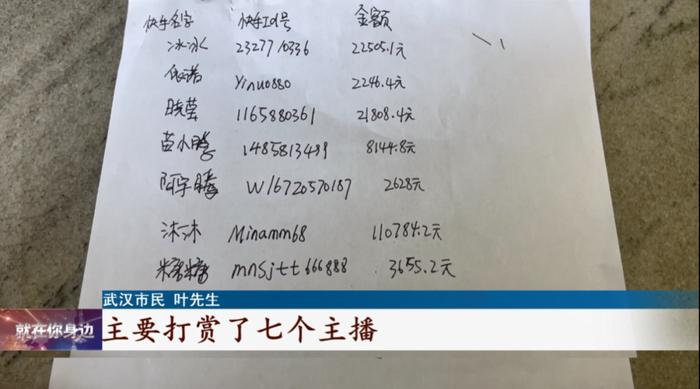 快手名字 快手ID号 金额
冰冰 2327710336 22505.1元
依诺 Yinuo880 2246.4元
晓莹 1165880361 21808.4元
苗小腾 1485813499 8144.8元
阿宇腾 W16720570187 2628元
沐沐 Minamm68 110784.2元
糖糖 mnsjtt666888 3655.2元
武汉市民 叶先生
就在你身边
主要打赏了七个主播